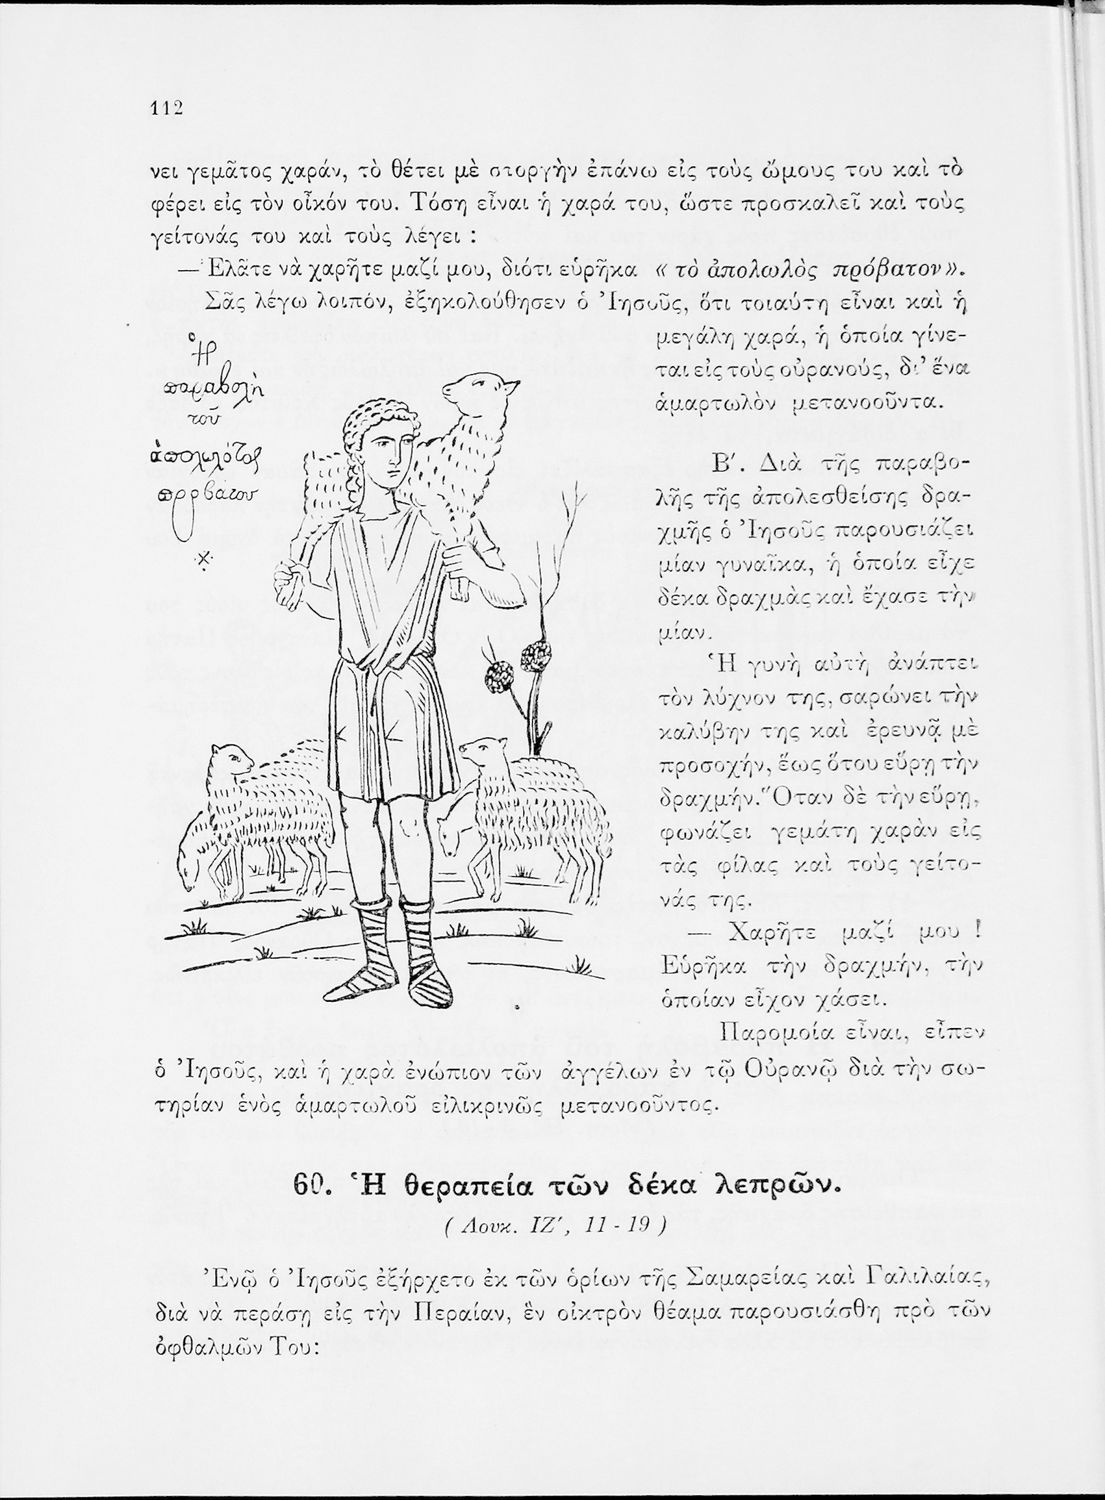 112
νει γεμᾶτος χαράν, τὸ θέτει μὲ στοργὴν ἐπάνω εἰς τοὺς ὤμους του καὶ τὸ
φέρει εἰς τὸν οἶκόν του. Τόση εἶναι ἡ χαρά του, ὥστε προσκαλεῖ καὶ τοὺς
γείτονάς του καὶ τοὺς λέγει :
— Ἐλᾶτε νὰ χαρῆτε μαζί μου, διότι εὑρῆκα « τὸ ἀπολωλὸς πρόβατον».
Σᾶς λέγω λοιπόν, ἐξηκολούθησεν ὁ Ἰησοῦς, ὅτι τοιαύτη εἶναι καὶ ἡ
μεγάλη χαρά, ἡ ὁποία γίνε-
ται εἰς τοὺς οὐρανούς, δι’ ἕνα
ἁμαρτωλὸν μετανοοῦντα.
Ἡ
παραβολὴ
τοῦ
ἀπολωλότος
προβάτου
Β′. Διὰ τῆς παραβο-
λῆς τῆς ἀπολεσθείσης δρα-
χμῆς ὁ Ἰησοῦς παρουσιάζει
μίαν γυναῖκα, ἡ ὁποία εἶχε
δέκα δραχμὰς καὶ ἔχασε τὴν
μίαν.
Ἡ γυνὴ αὐτὴ ἀνάπτει
τὸν λύχνον της, σαρώνει τὴν
καλύβην της καὶ ἐρευνᾷ μὲ
προσοχήν, ἕως ὅτου εὕρῃ τὴν
δραχμήν. Ὅταν δὲ τὴν εὕρῃ,
φωνάζει γεμάτη χαρὰν εἰς
τὰς φίλας καὶ τοὺς γείτο-
νάς της.
— Χαρῆτε μαζί μου !
Εὑρῆκα τὴν δραχμήν, τὴν
ὁποίαν εἶχον χάσει.
Παρομοία εἶναι, εἶπεν
ὁ Ἰησοῦς, καὶ ἡ χαρὰ ἐνώπιον τῶν ἀγγέλων ἐν τῷ Οὐρανῷ διὰ τὴν σω-
τηρίαν ἑνὸς ἁμαρτωλοῦ εἰλικρινῶς μετανοοῦντος.
60. Ἡ θεραπεία τῶν δέκα λεπρῶν.
( Λουκ. ΙΖ′, 11 - 19 )
Ἐνῷ ὁ Ἰησοῦς ἐξήρχετο ἐκ τῶν ὁρίων τῆς Σαμαρείας καὶ Γαλιλαίας,
διὰ νὰ περάσῃ εἰς τὴν Περαίαν, ἓν οἰκτρὸν θέαμα παρουσιάσθη πρὸ τῶν
ὀφθαλμῶν Του: